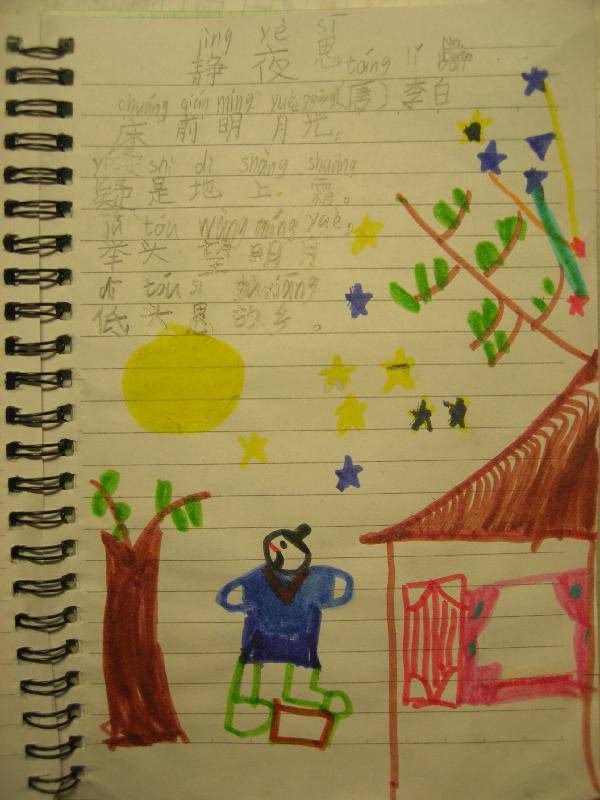 jìng yè sī
静 夜 思
táng lǐ
（唐）李白
chuáng qián míng yuè guāng
床前明月光。
yí shì dì shàng shuāng
疑是地上霜。
jǔ tóu wàng míng yuè
举头望明月
dī tóu sī gù xiāng
低头思故乡。